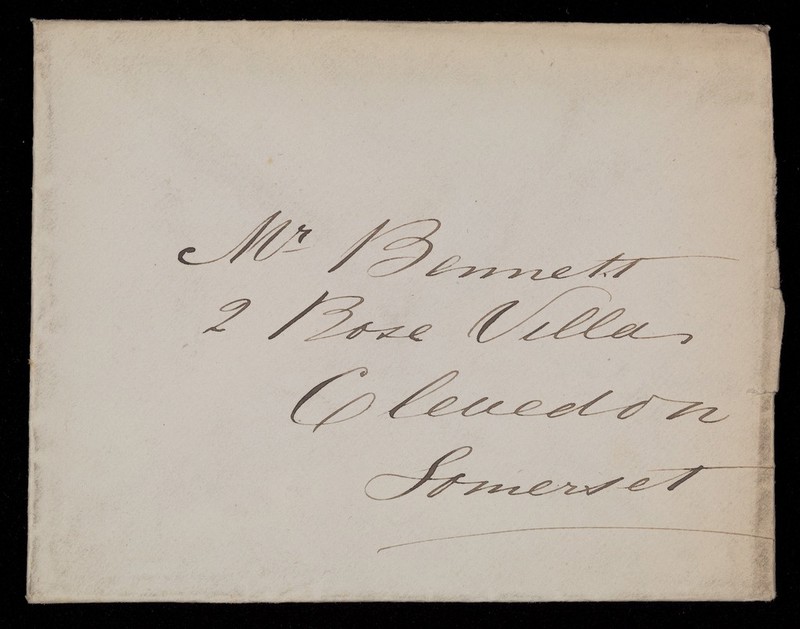 Mr Bennett
2 Rose Villas
Clevedon
Somerset